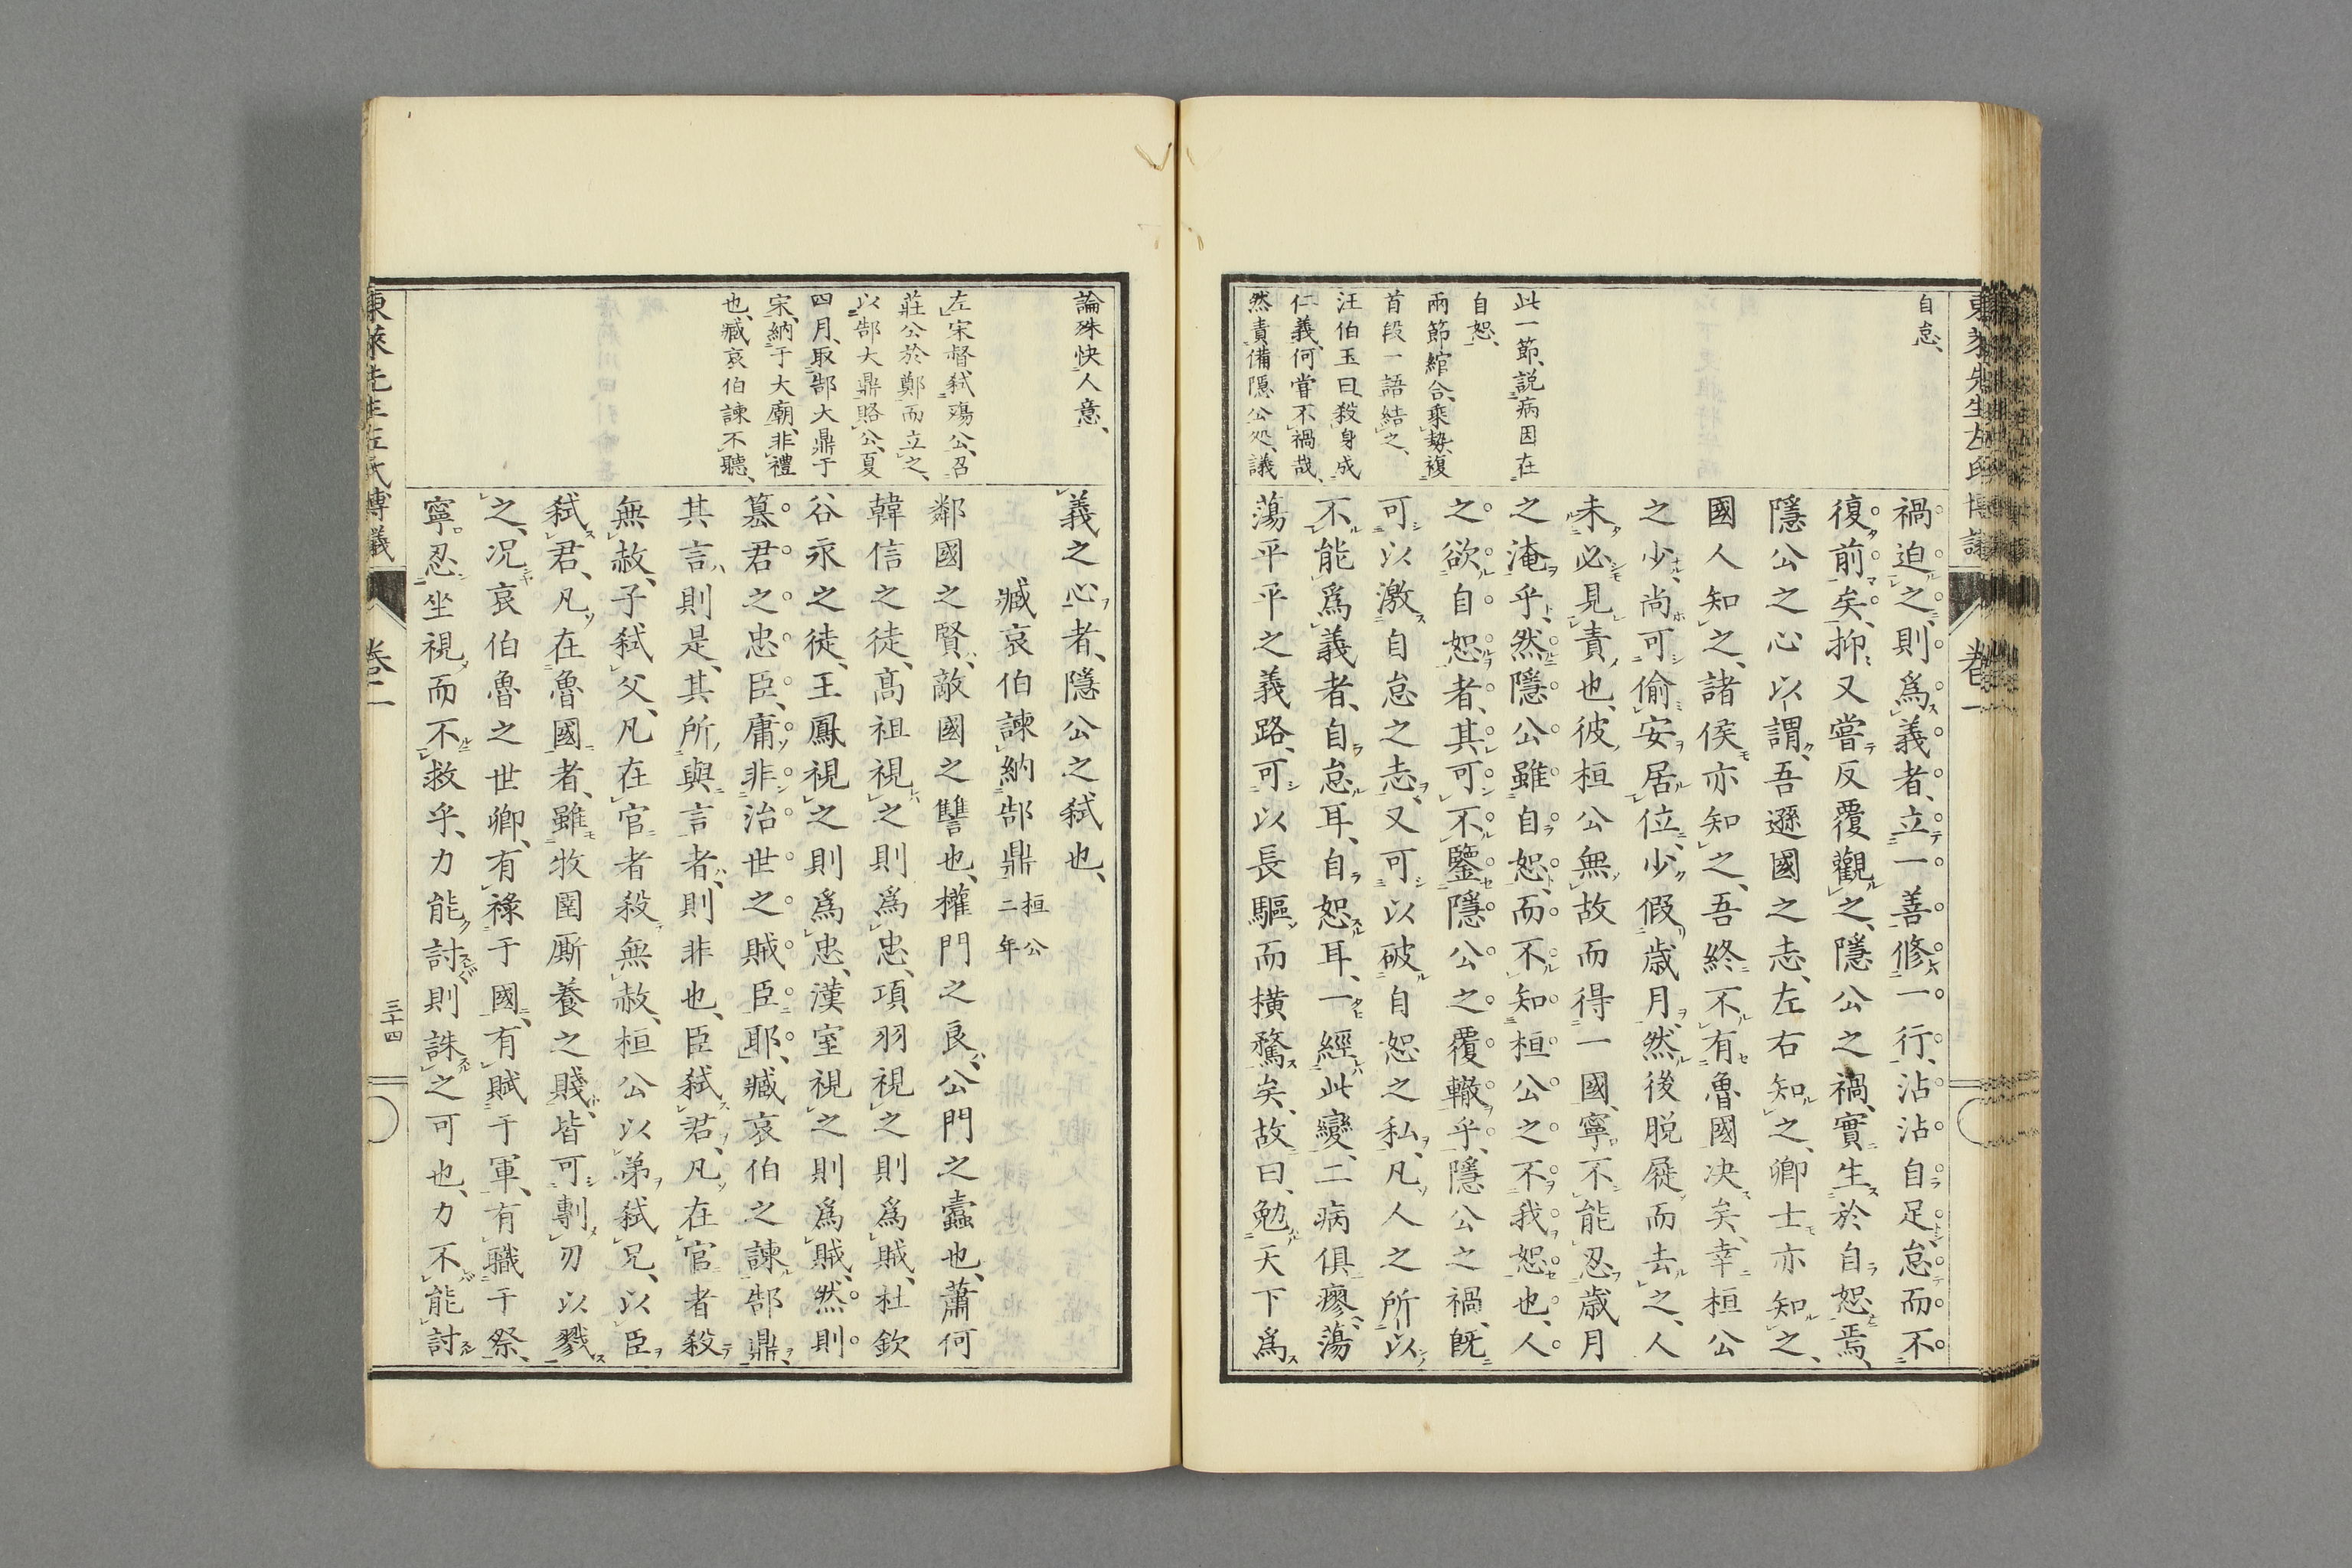 自怠、
此一節、説病因在
自恕、
兩節綰合、乘勢複
首段一語結之、
汪伯玉曰、殺身成
仁義、何嘗不禍哉、
然責備隱公処、議
禍迫之、則爲義者、立一善修一行、沾沾自足怠而不
復前矣、抑又嘗反覆觀之、隱公之禍、實生於自恕焉、
隱公之心以謂、吾遜國之志、左右知之、卿士亦知之、
國人知之、諸侯亦知之、吾終不有魯國决矣、幸桓公
之少、尚可偷安居位、少假歳月、然後脱屣而去之、人
未必見責也、彼桓公無故而得一國、寧不能忍歳月
之淹乎、然隱公雖自恕、而不知桓公之不我恕也、人
之欲自恕者、其可不鑒隱公之覆轍乎、隱公之禍、既
可以激自怠之志、又可以破自恕之私、凡人之所以
不能爲義者、自怠耳、自恕耳、一經此變、二病俱瘳、蕩
蕩平平之義路、可以長驅而横騖矣、故曰、勉天下爲
論殊快人意、
左宋督、弑殤公、召
莊公於鄭而立之、
以郜大鼎賂公、夏
四月、取郜大鼎于
宋、納于大廟、非禮
也、臧哀伯諫不聽、
義之心者、隱公之弑也、
臧哀伯諫納郜鼎 桓公二年
鄰國之賢、敵國之讐也、權門之良、公門之蠹也、蕭何
韓信之徒、髙祖視之則爲忠、項羽視之則爲賊、杜欽
谷永之徒、王鳳視之則爲忠、漢室視之則爲賊、然則
簒君之忠臣、庸非治世之賊臣耶、臧哀伯之諫郜鼎、
其言則是、其所與言者、則非也、臣弑君、凡在官者殺
無赦、子弑父、凡在官者殺無赦、桓公以弟弑兄、以臣
弑君、凡在魯國者、雖牧圉厮養之賤、皆可剸刃以戮
之、况哀伯魯之世卿、有祿于國、有賦于軍、有職于祭、
寧忍坐視而不救乎、力能討則誅之可也、力不能討
東萊先生左氏博議
卷二
三十四